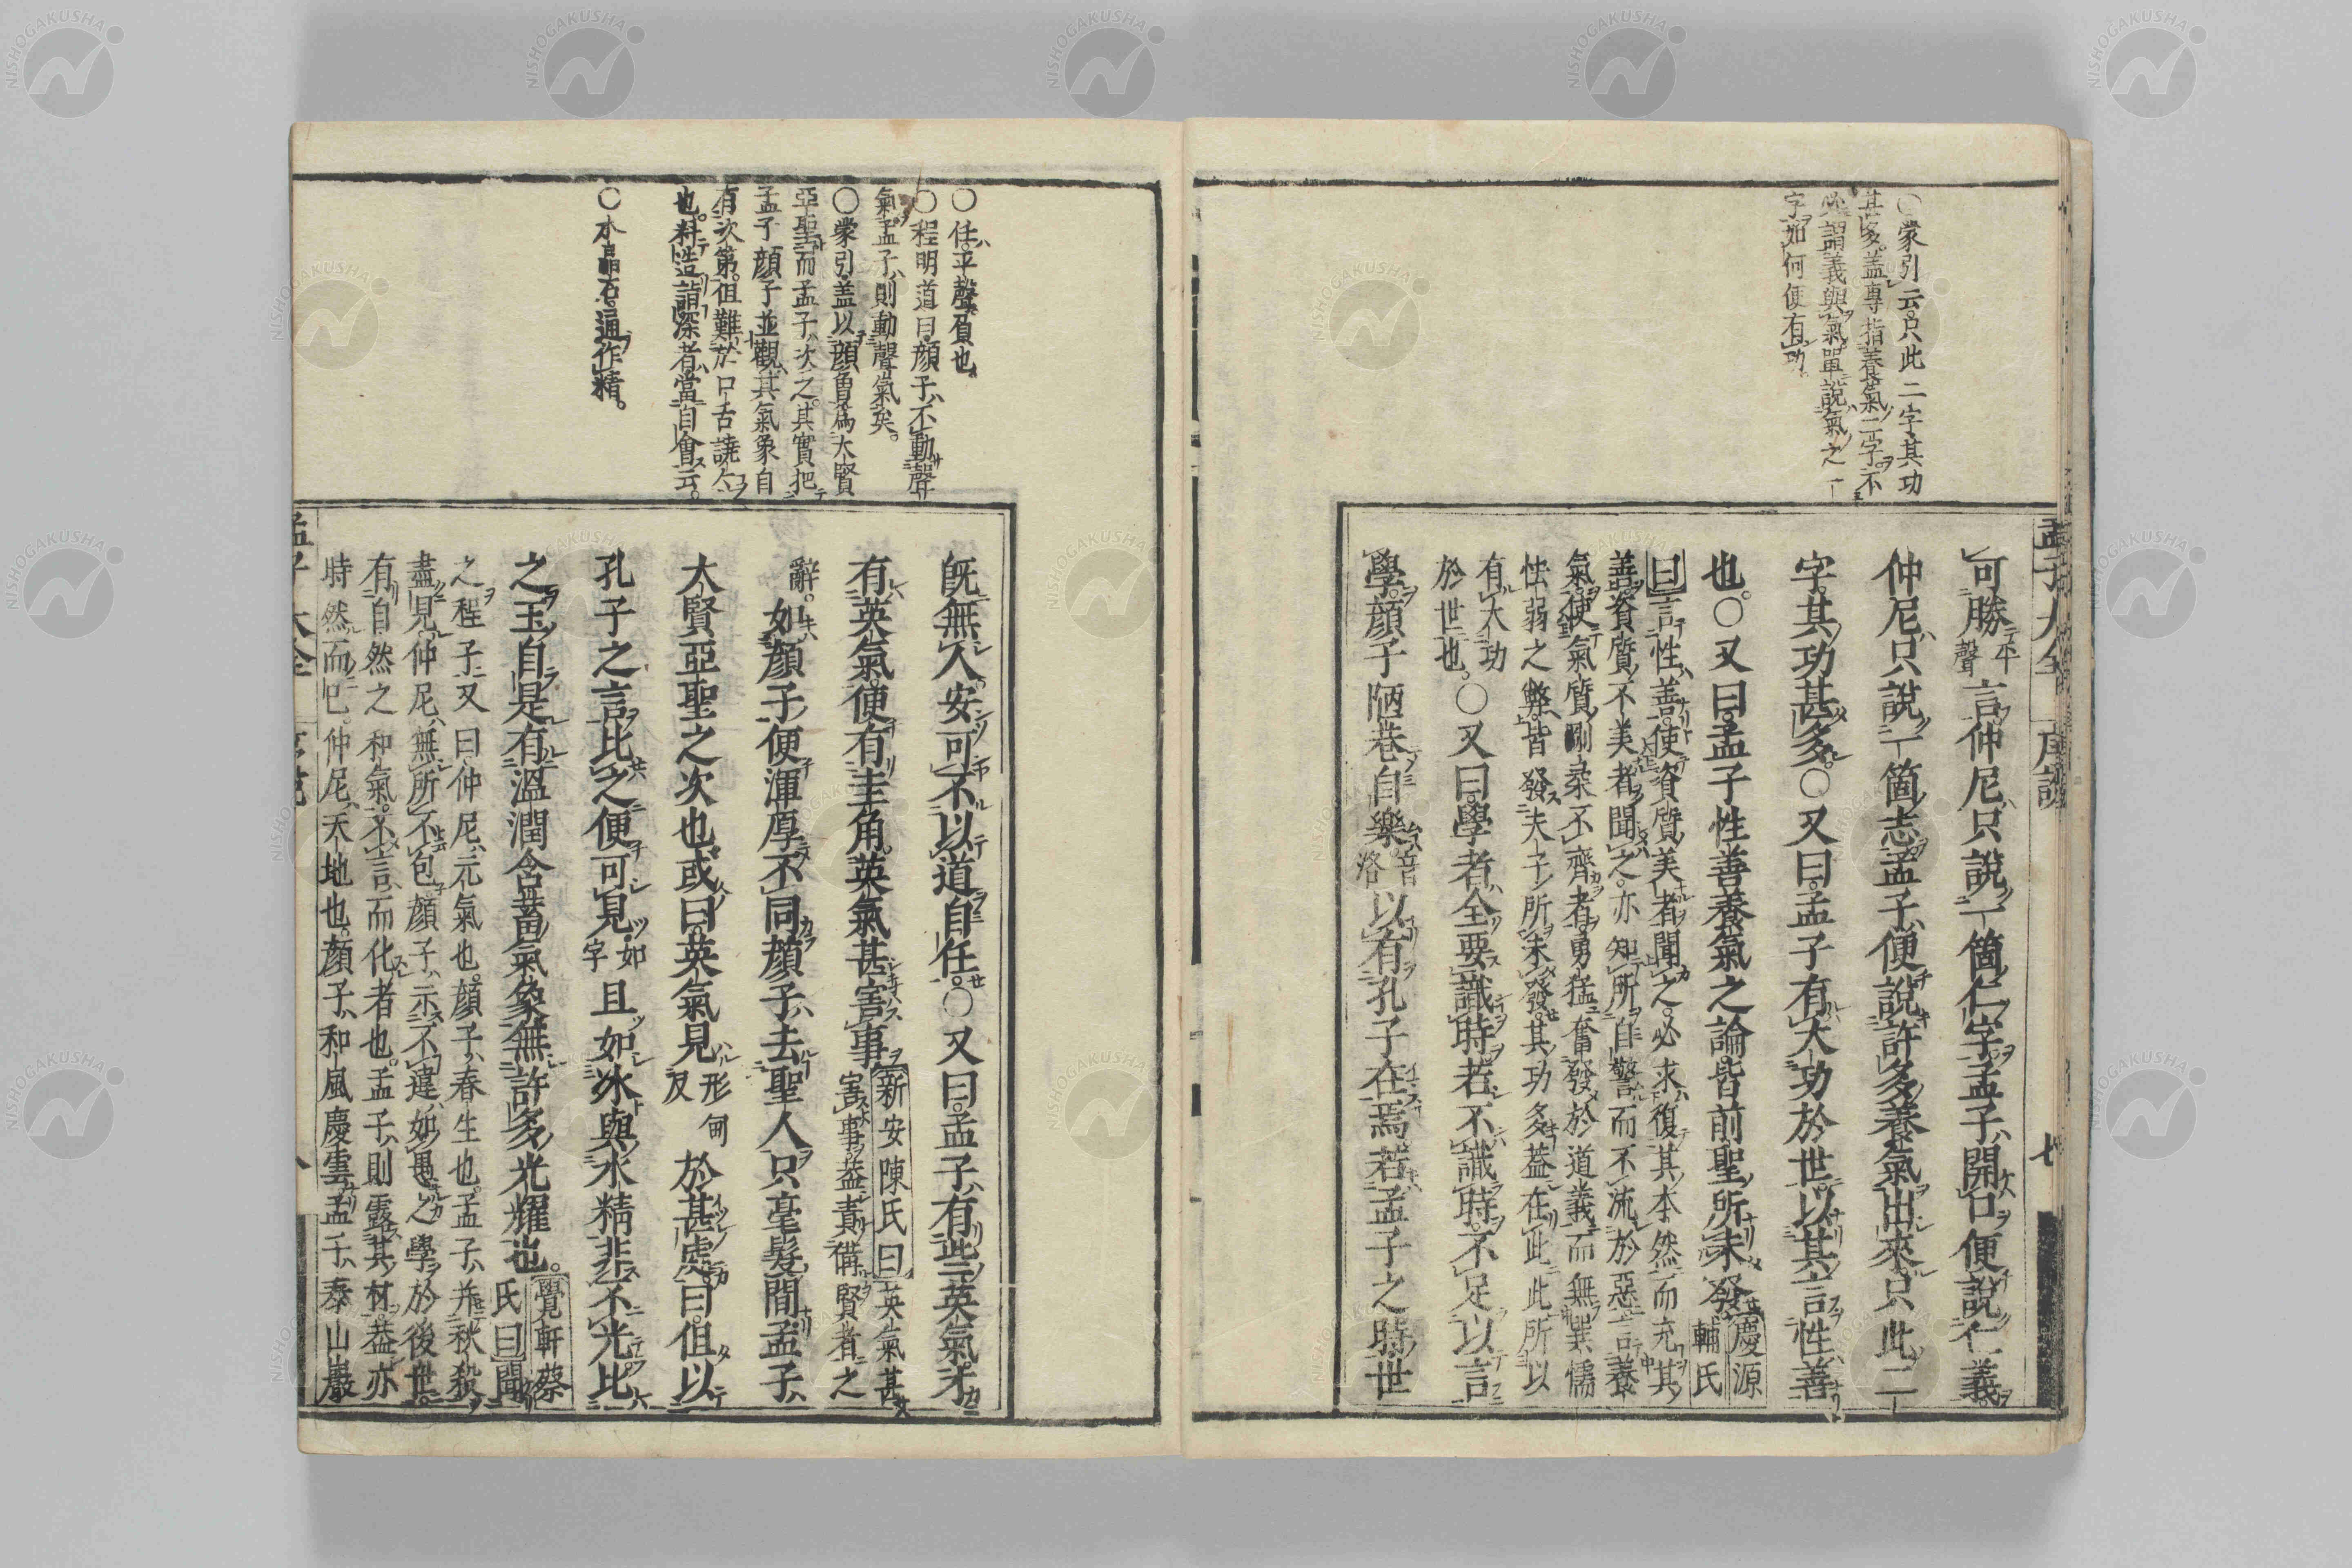 孟子大全 序說 七
○蒙引云只此二字其功
甚多蓋專指養氣二字不
必謂義與氣單說氣之一
字如何便有功
可勝平聲言仲尼只說一箇仁字孟子開口便說仁義
仲尼只說一箇志孟子便說許多養氣出來只此二
字其功甚多○又曰孟子有大功於世以其言性善
也○又曰孟子性善養氣之論皆前聖所未發慶源輔氏
曰言性善使資質美者聞之必求復其本然而充其
善資質不美者聞之亦知所自警而不流於惡言養
氣使氣質剛柔不齊者勇猛奮發於道義而無巽懦
怯弱之弊皆發夫子所未發其功多蓋在此此所以
有大功
於世也○又曰學者全要識時若不識時不足以言
學顏子陋巷自樂音洛以有孔子在焉若孟子之時世
○任平聲負也
○程明道曰顏子不動聲
氣孟子則動聲氣矣
○蒙引蓋以顏曾爲大賢
亞聖而孟子次之其實把
孟子顏子並觀其氣象自
有次第但難於口舌譊々
也料造詣深者當自會云
○水晶古通作精
旣無人安可不以道自任○又曰孟子有些英氣才
有英氣便有圭角英氣甚害事新安陳氏曰英氣甚害事蓋責備賢者之
辭如顏子便渾厚不同顏子去聖人只毫髮間孟子
大賢亞聖之次也或曰英氣見形甸反於甚處曰但以
孔子之言比之便可見如字且如冰與水精非不光比
之玉自是有溫潤含蓄氣象無許多光耀也覺軒蔡氏曰聞
之程子又曰仲尼元氣也顏子春生也孟子并秋殺
盡見仲尼無所不包顏子示不違如愚之學於後世
有自然之和氣不言而化者也孟子則露其材蓋亦
時然而已仲尼天地也顏子和風慶雲孟子泰山巖
孟子大全 序說 八